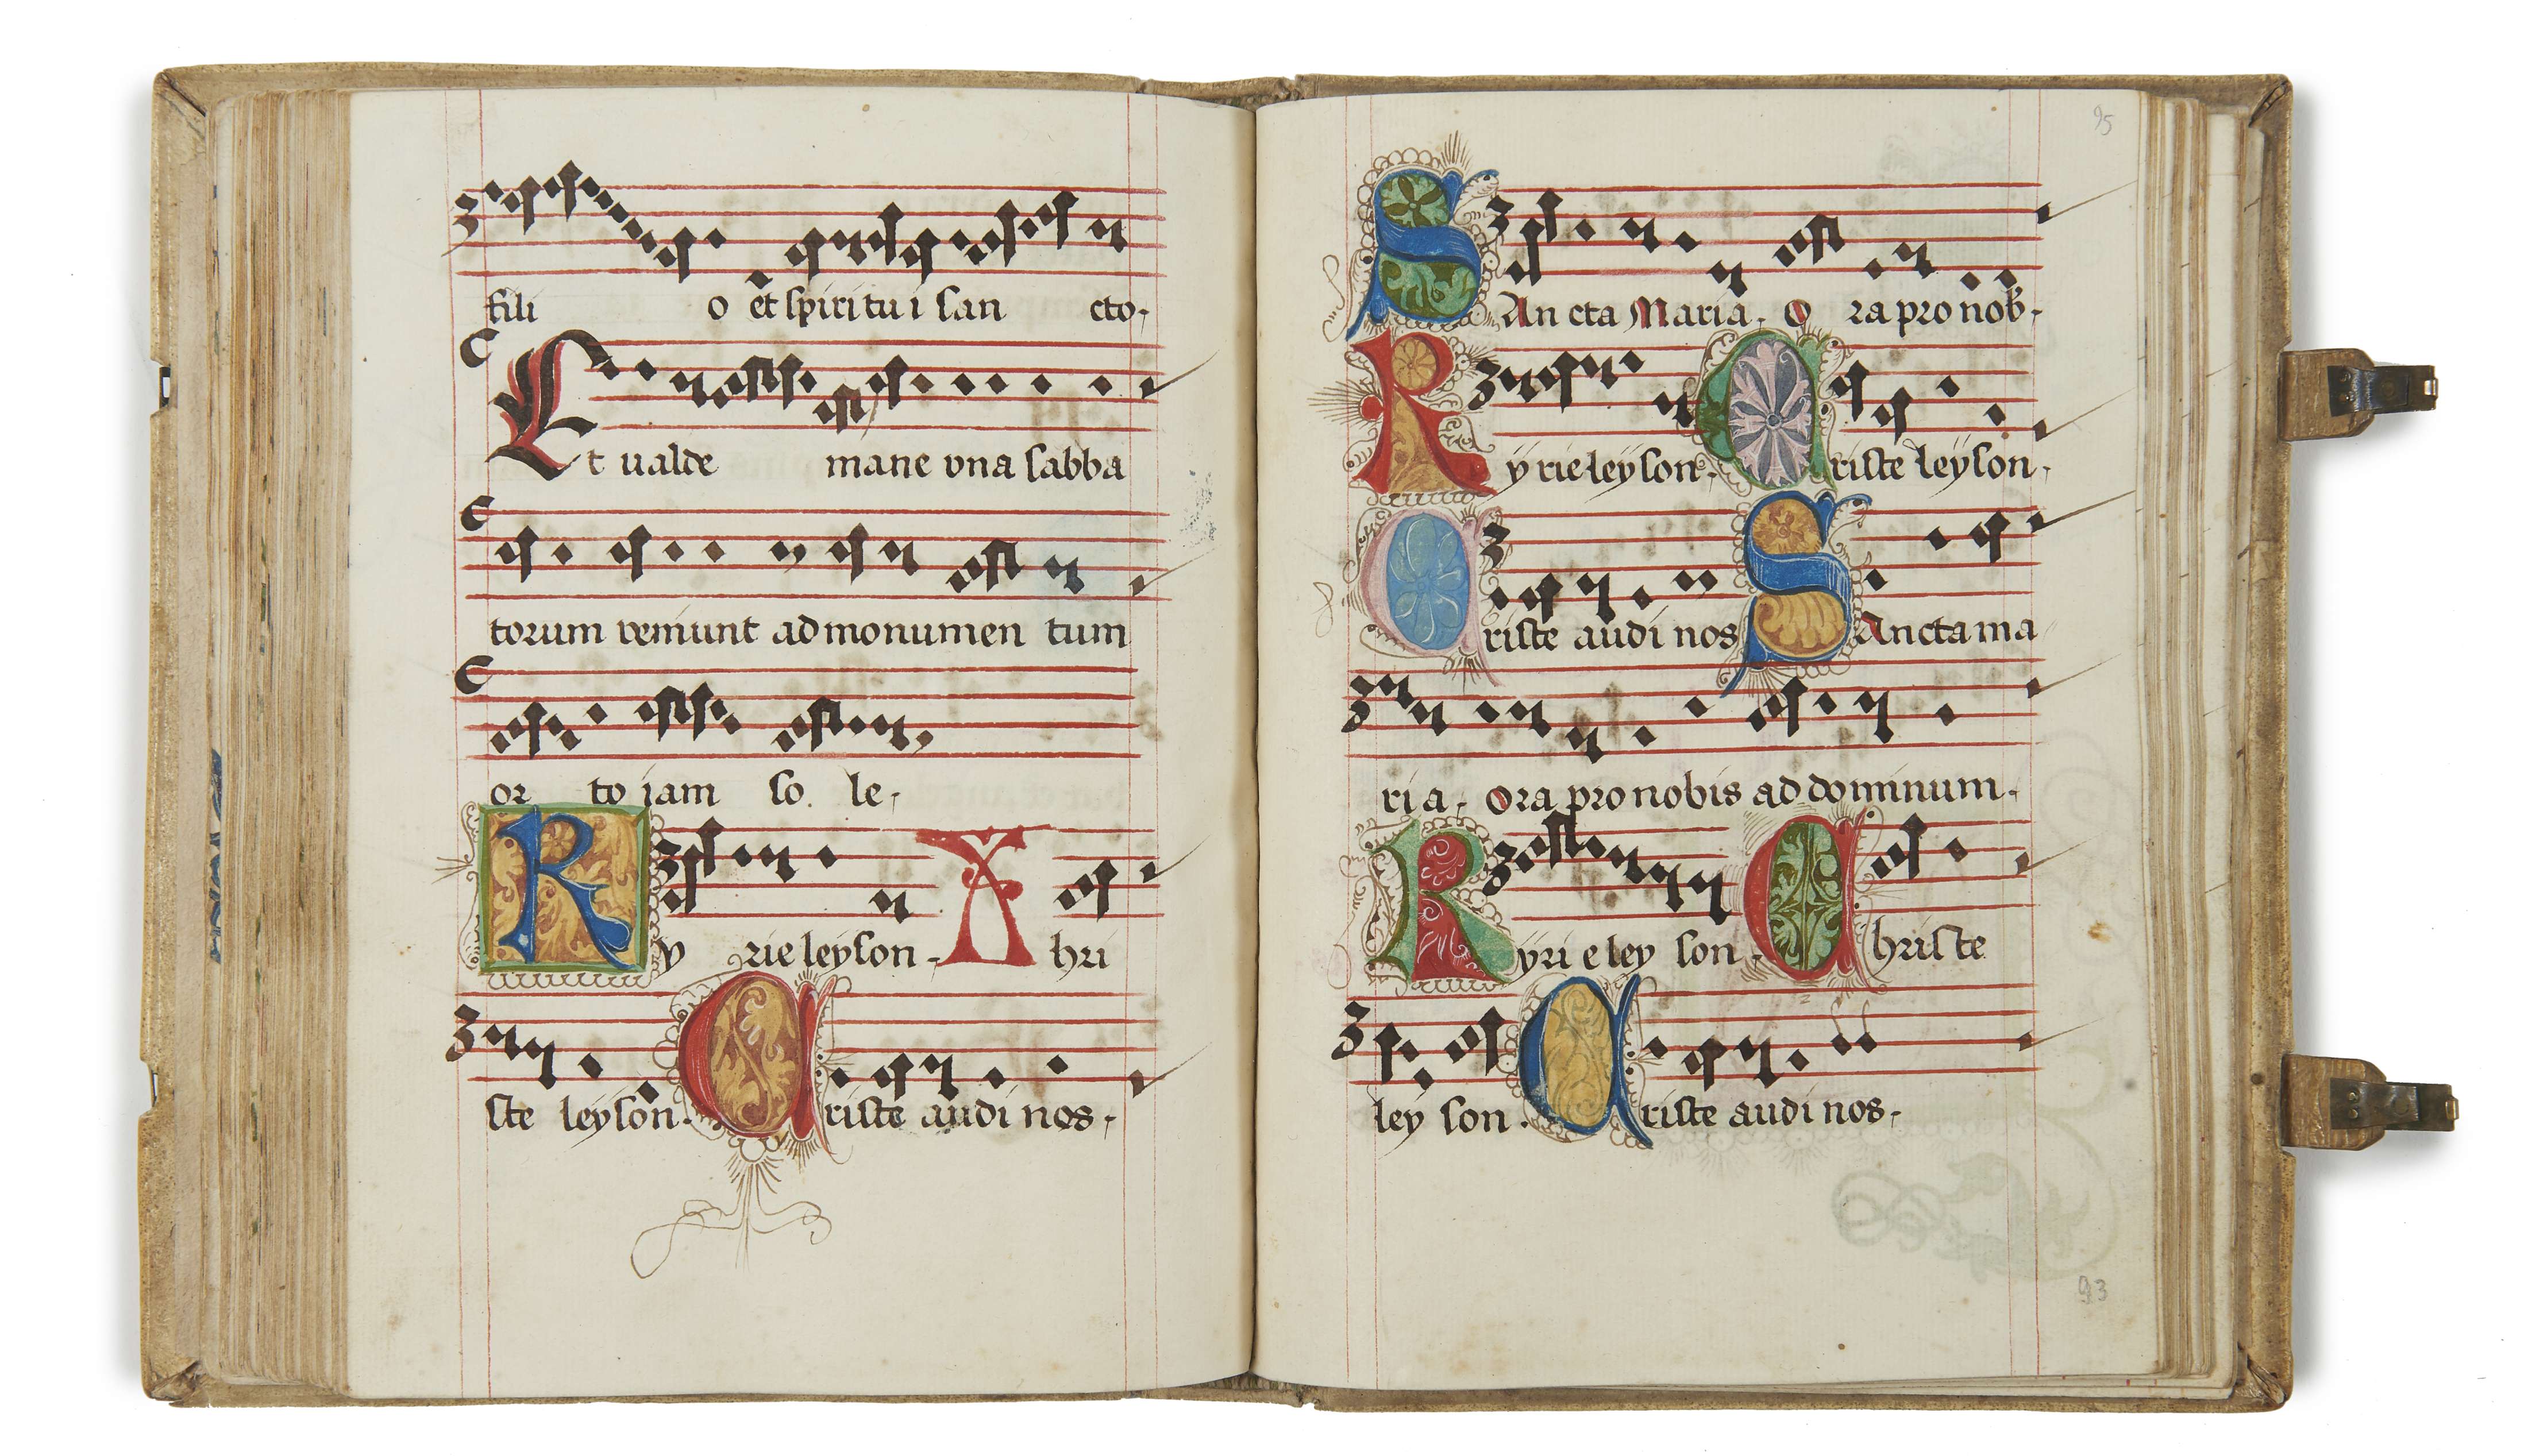 fili o et spiritui san cto.
Et ualde mane vna sabba
torum veniunt ad monumen tum
or to jam so le.
Ky rieleyson. Xhri
ste leyson. Criste audi nos.
95
SAncta Maria. O ra pro nob.
Kyrieleyson. Criste leyson.
Criste audi nos SAncta ma
ria. Ora pro nobis ad dominum.
Kyri e ley son. Christe
ley son. Criste audi nos.
93